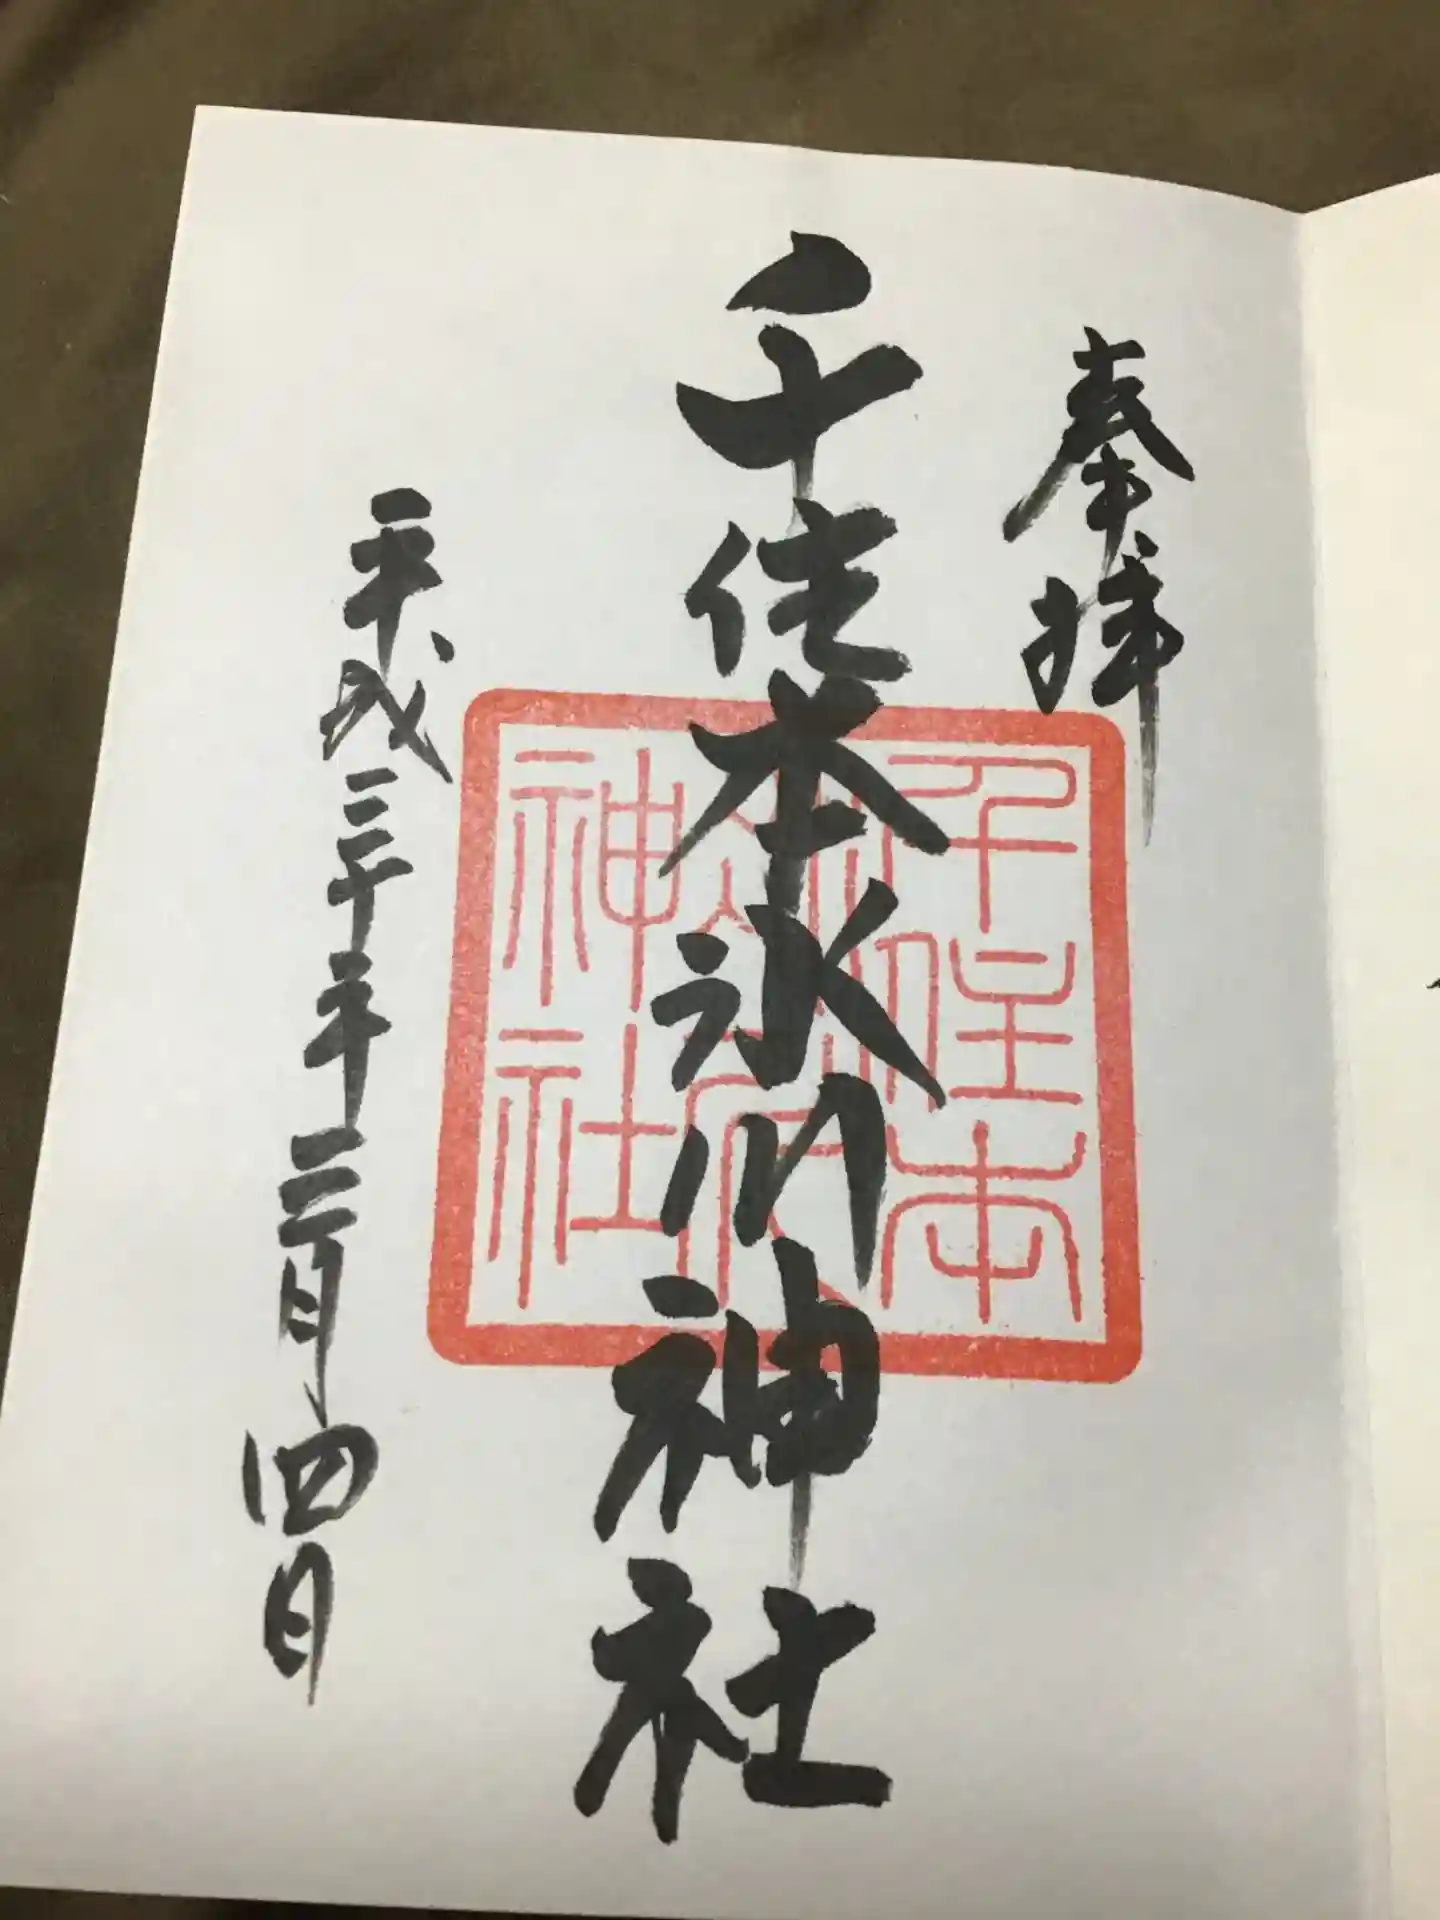 奉拝
千住本氷川神社
平成三十年三月四日
千住本
氷川
神社